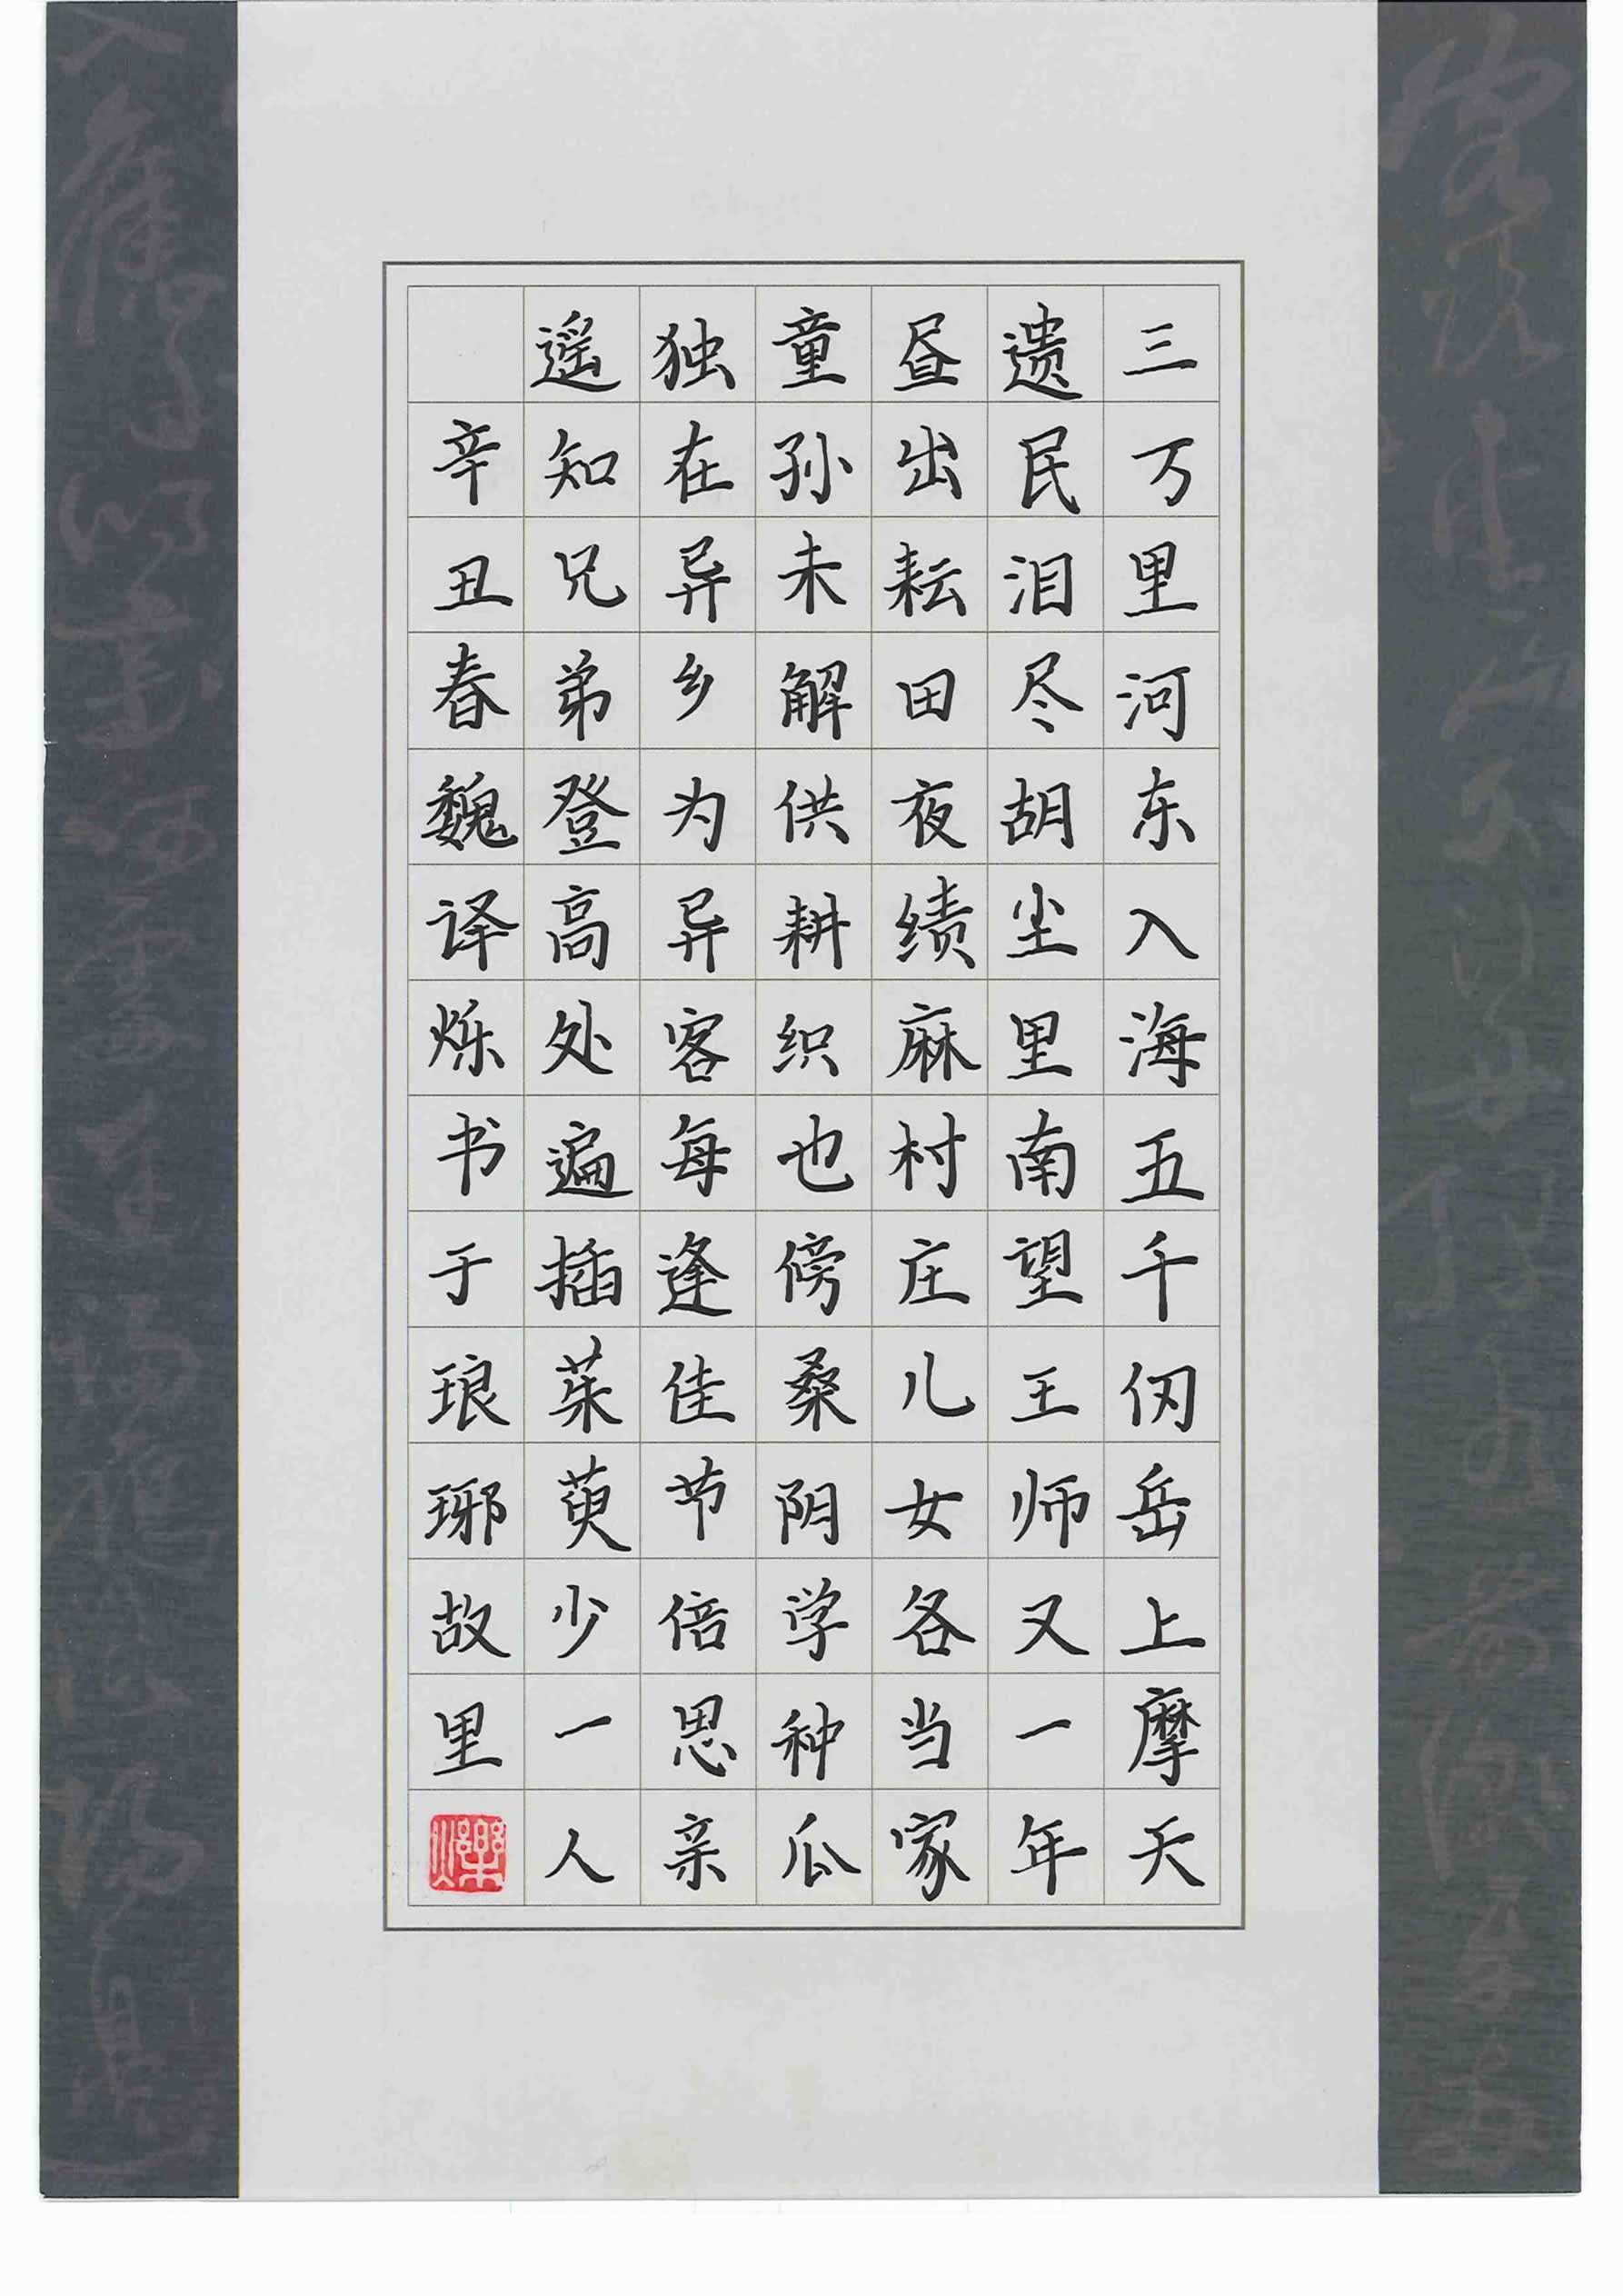 三万里河东入海五千仞岳上摩天
遗民泪尽胡尘里南望王师又一年
昼出耘田夜绩麻村庄儿女各当家
童孙未解供耕织也傍桑阴学种瓜
独在异乡为异客每逢佳节倍思亲
遥知兄弟登高处遍插茱萸少一人
辛丑春魏译烁书于琅琊故里